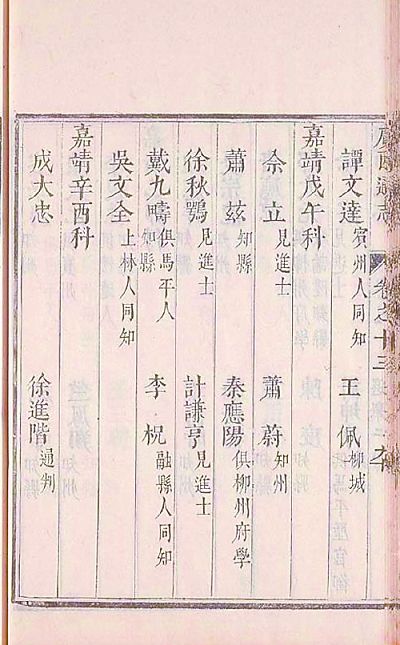 廣西通志 卷之十三
譚文達 賓州人同知 王佩 柳城
嘉靖戊午科
佘立 見進士 蕭蔚 知州
蕭茲 知縣 秦應陽 俱柳州府學
徐秋鶚 見進士 計謙亨 見進士
戴九疇 俱馬平人知縣 李柷 融縣人同知
吳文全 上林人同知
嘉靖辛酉科
成大忠 徐進階 通判